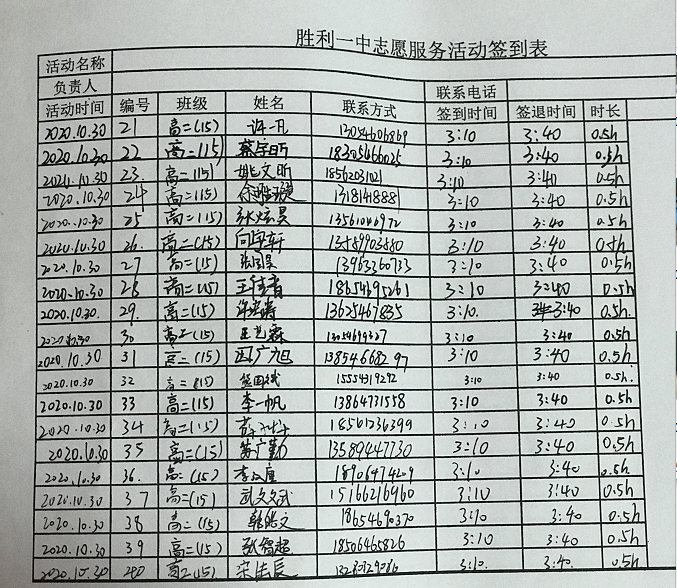 胜利一中志愿服务活动签到表
活动名称
负责人 联系电话
活动时间 编号 班级 姓名 联系方式 签到时间 签退时间 时长
2020.10.30 21 高二(15) 许一凡 13054606869 3:10 3:40 0.5h
2020.10.30 22 高二(15) 蔡宇昕 18305466025 3:10 3:40 0.5h
2020.10.30 23. 高二(15) 姚文昕 18562031021 3:10 3:40 0.5h
2020.10.30 24 高二(15) 3:10 3:40 0.5h
2020.10.30 25 高二(15) 张炫昊 13561046972 3:10 3:40 0.5h
2020.10.30 26. 高二(15) 13589903880 3:10 3:40 0.5h
2020.10.30 27 高二(15) 13963360733 3:10 3:40 0.5h
2020.10.30 28 高二(15) 18654695261 3:10 3:40 0.5h
2020.10.30. 29. 高二(15) 13625467835 3:10. 3:40 0.5h.
2020.10.30 30 高二(15) 3:10 3:40 0.5h
2020.10.30 31 高二(15) 13854668297 3:10 3:40 0.5h
2020.10.30 32 高二(15) 15554319292 3:10 3:40 0.5h.
2020.10.30 33 高二(15) 李一帆 13864731558 3:10 3:40 0.5h
2020.10.30 34 高二(15) 18561236399 3:10 3:40 0.5h
2020.10.30 35 高二(15) 13589447730 3:10 3:40 0.5h
2020.10.30 36. 高二(15) 18906474209 3:10 3:40 0.5h
2020.10.30 37 高二(15) 武文斌 15166216960 3:10 3:40 0.5h
2020.10.30 38 高二(15) 韩皓文 18654690370 3:10 3:40 0.5h
2020.10.30 39 高二(15) 张智超 18506465826 3:10 3:40 0.5h
2020.10.30 40 高二(15) 3:10. 3:40. 0.5h